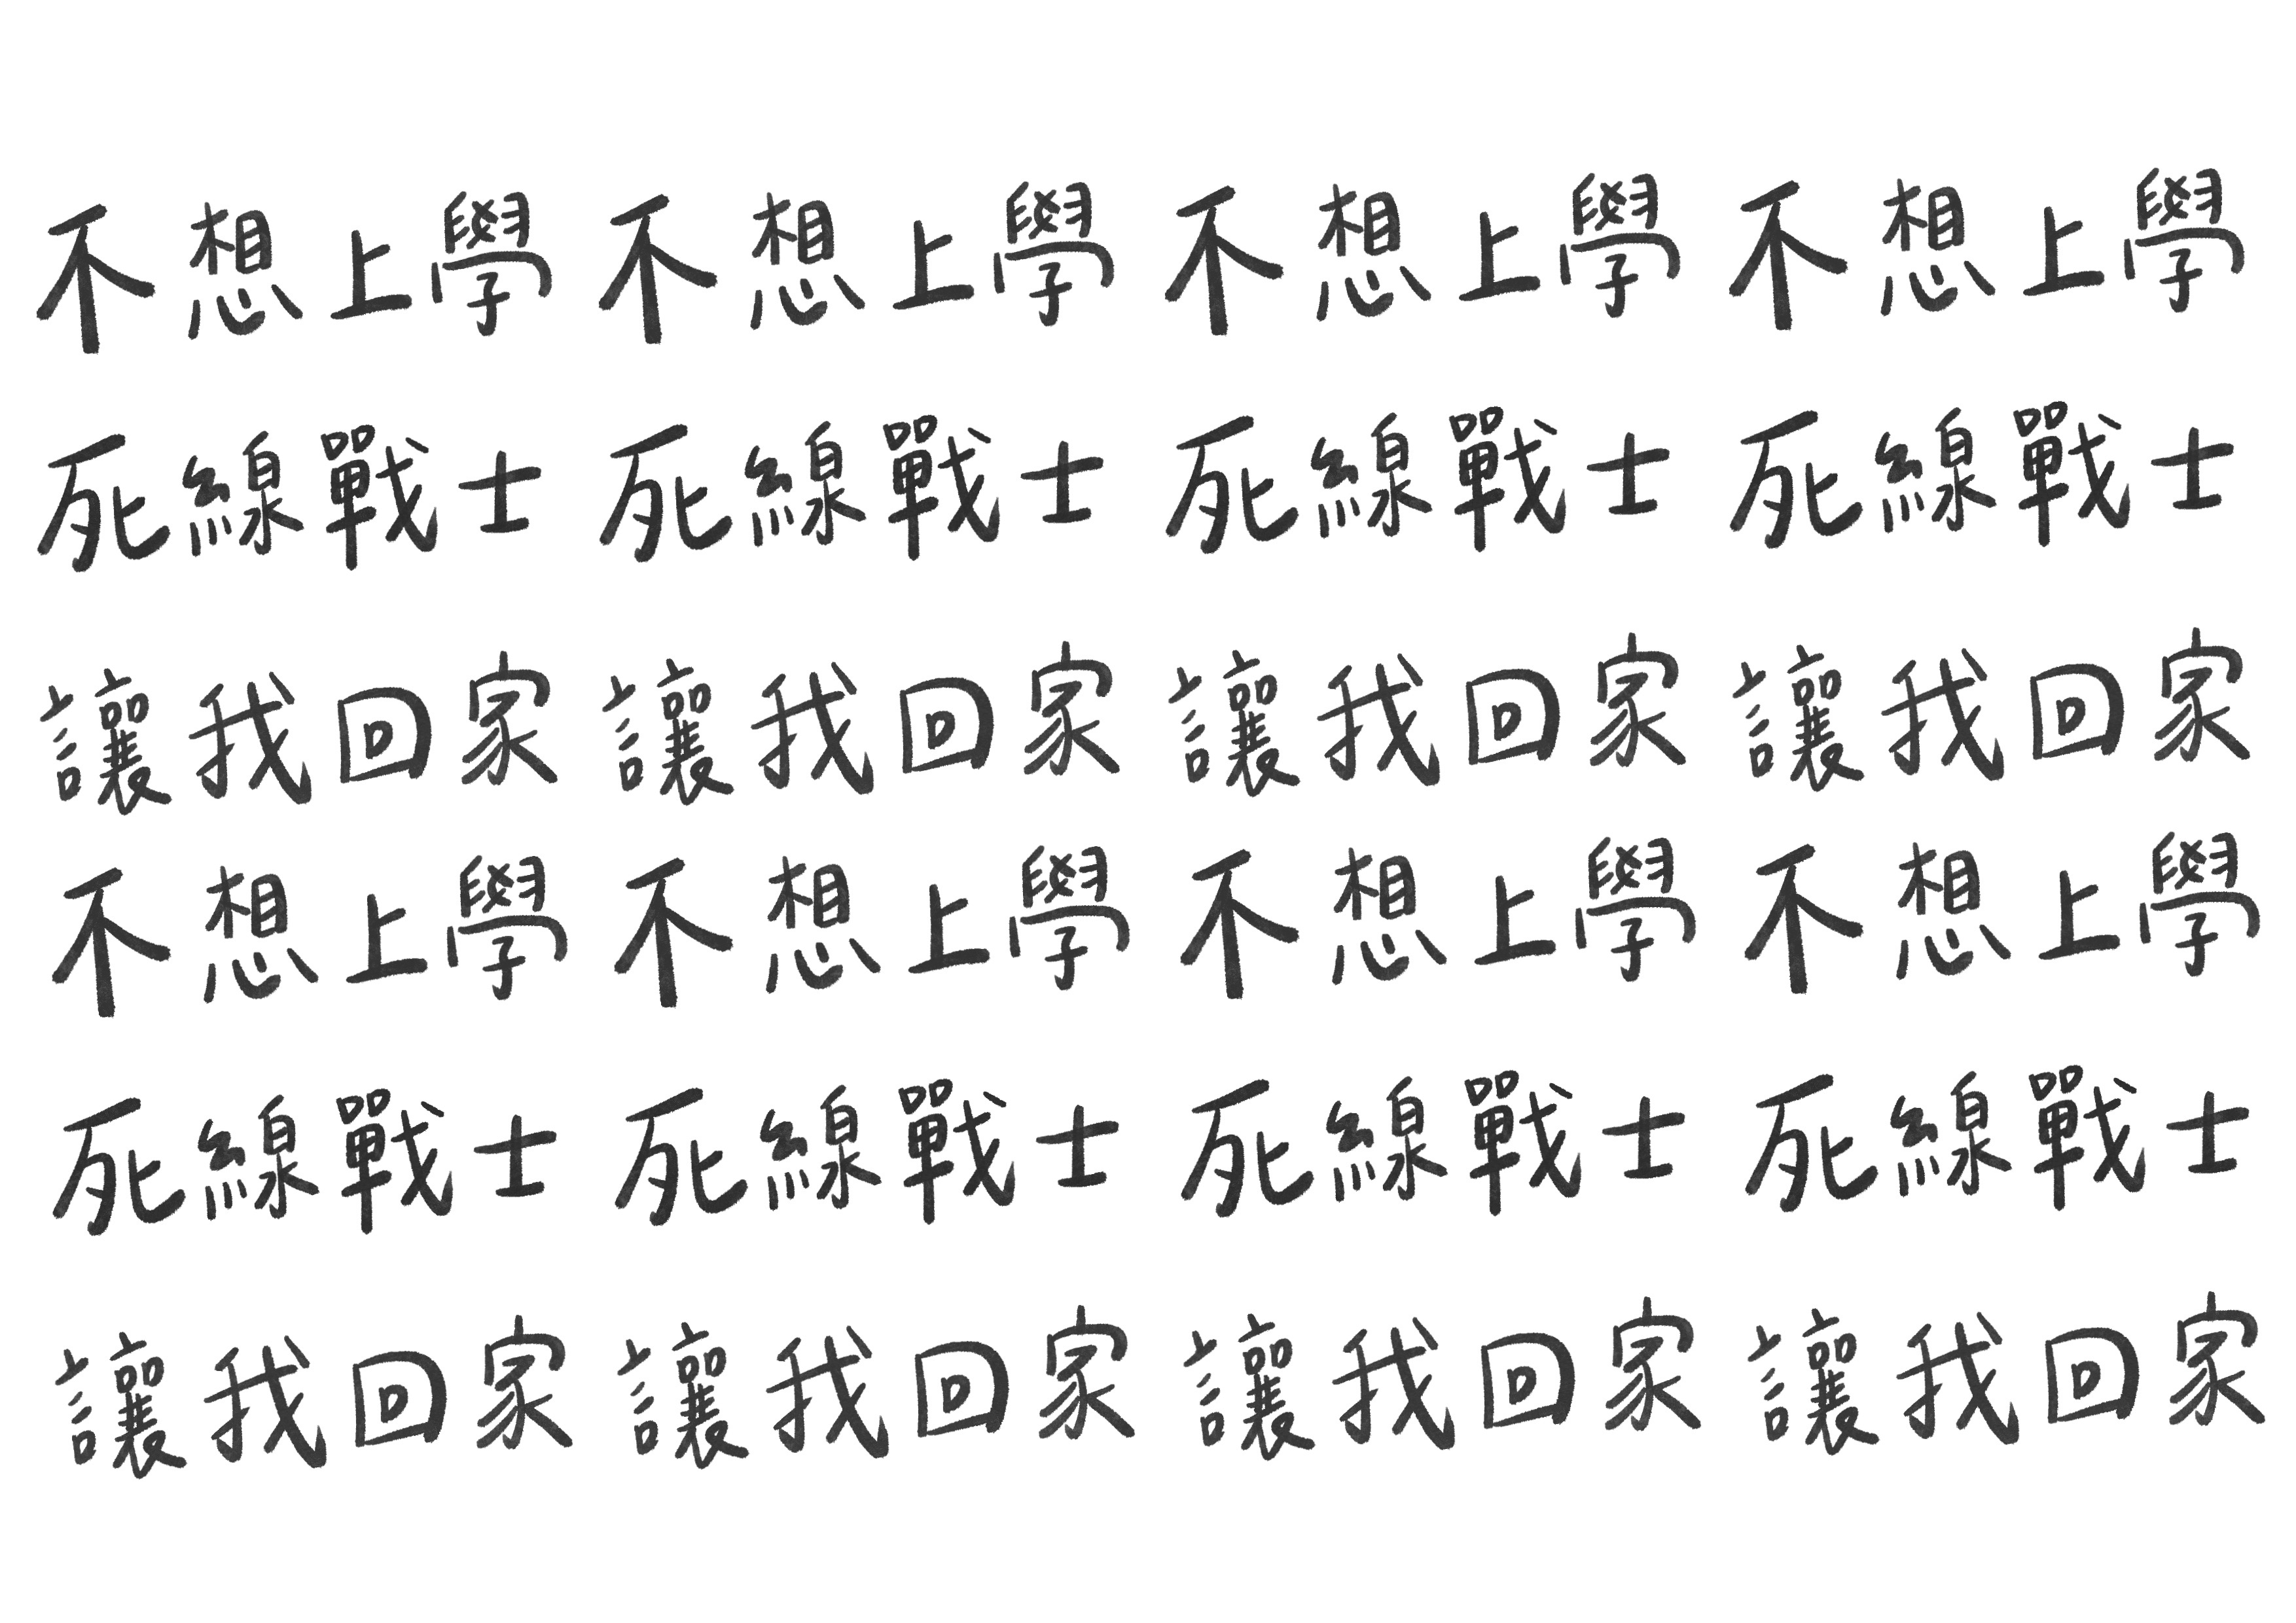 不想上學 不想上學 不想上學 不想上學
死線戰士 死線戰士 死線戰士 死線戰士
讓我回家 讓我回家 讓我回家 讓我回家
不想上學 不想上學 不想上學 不想上學
死線戰士 死線戰士 死線戰士 死線戰士
讓我回家 讓我回家 讓我回家 讓我回家